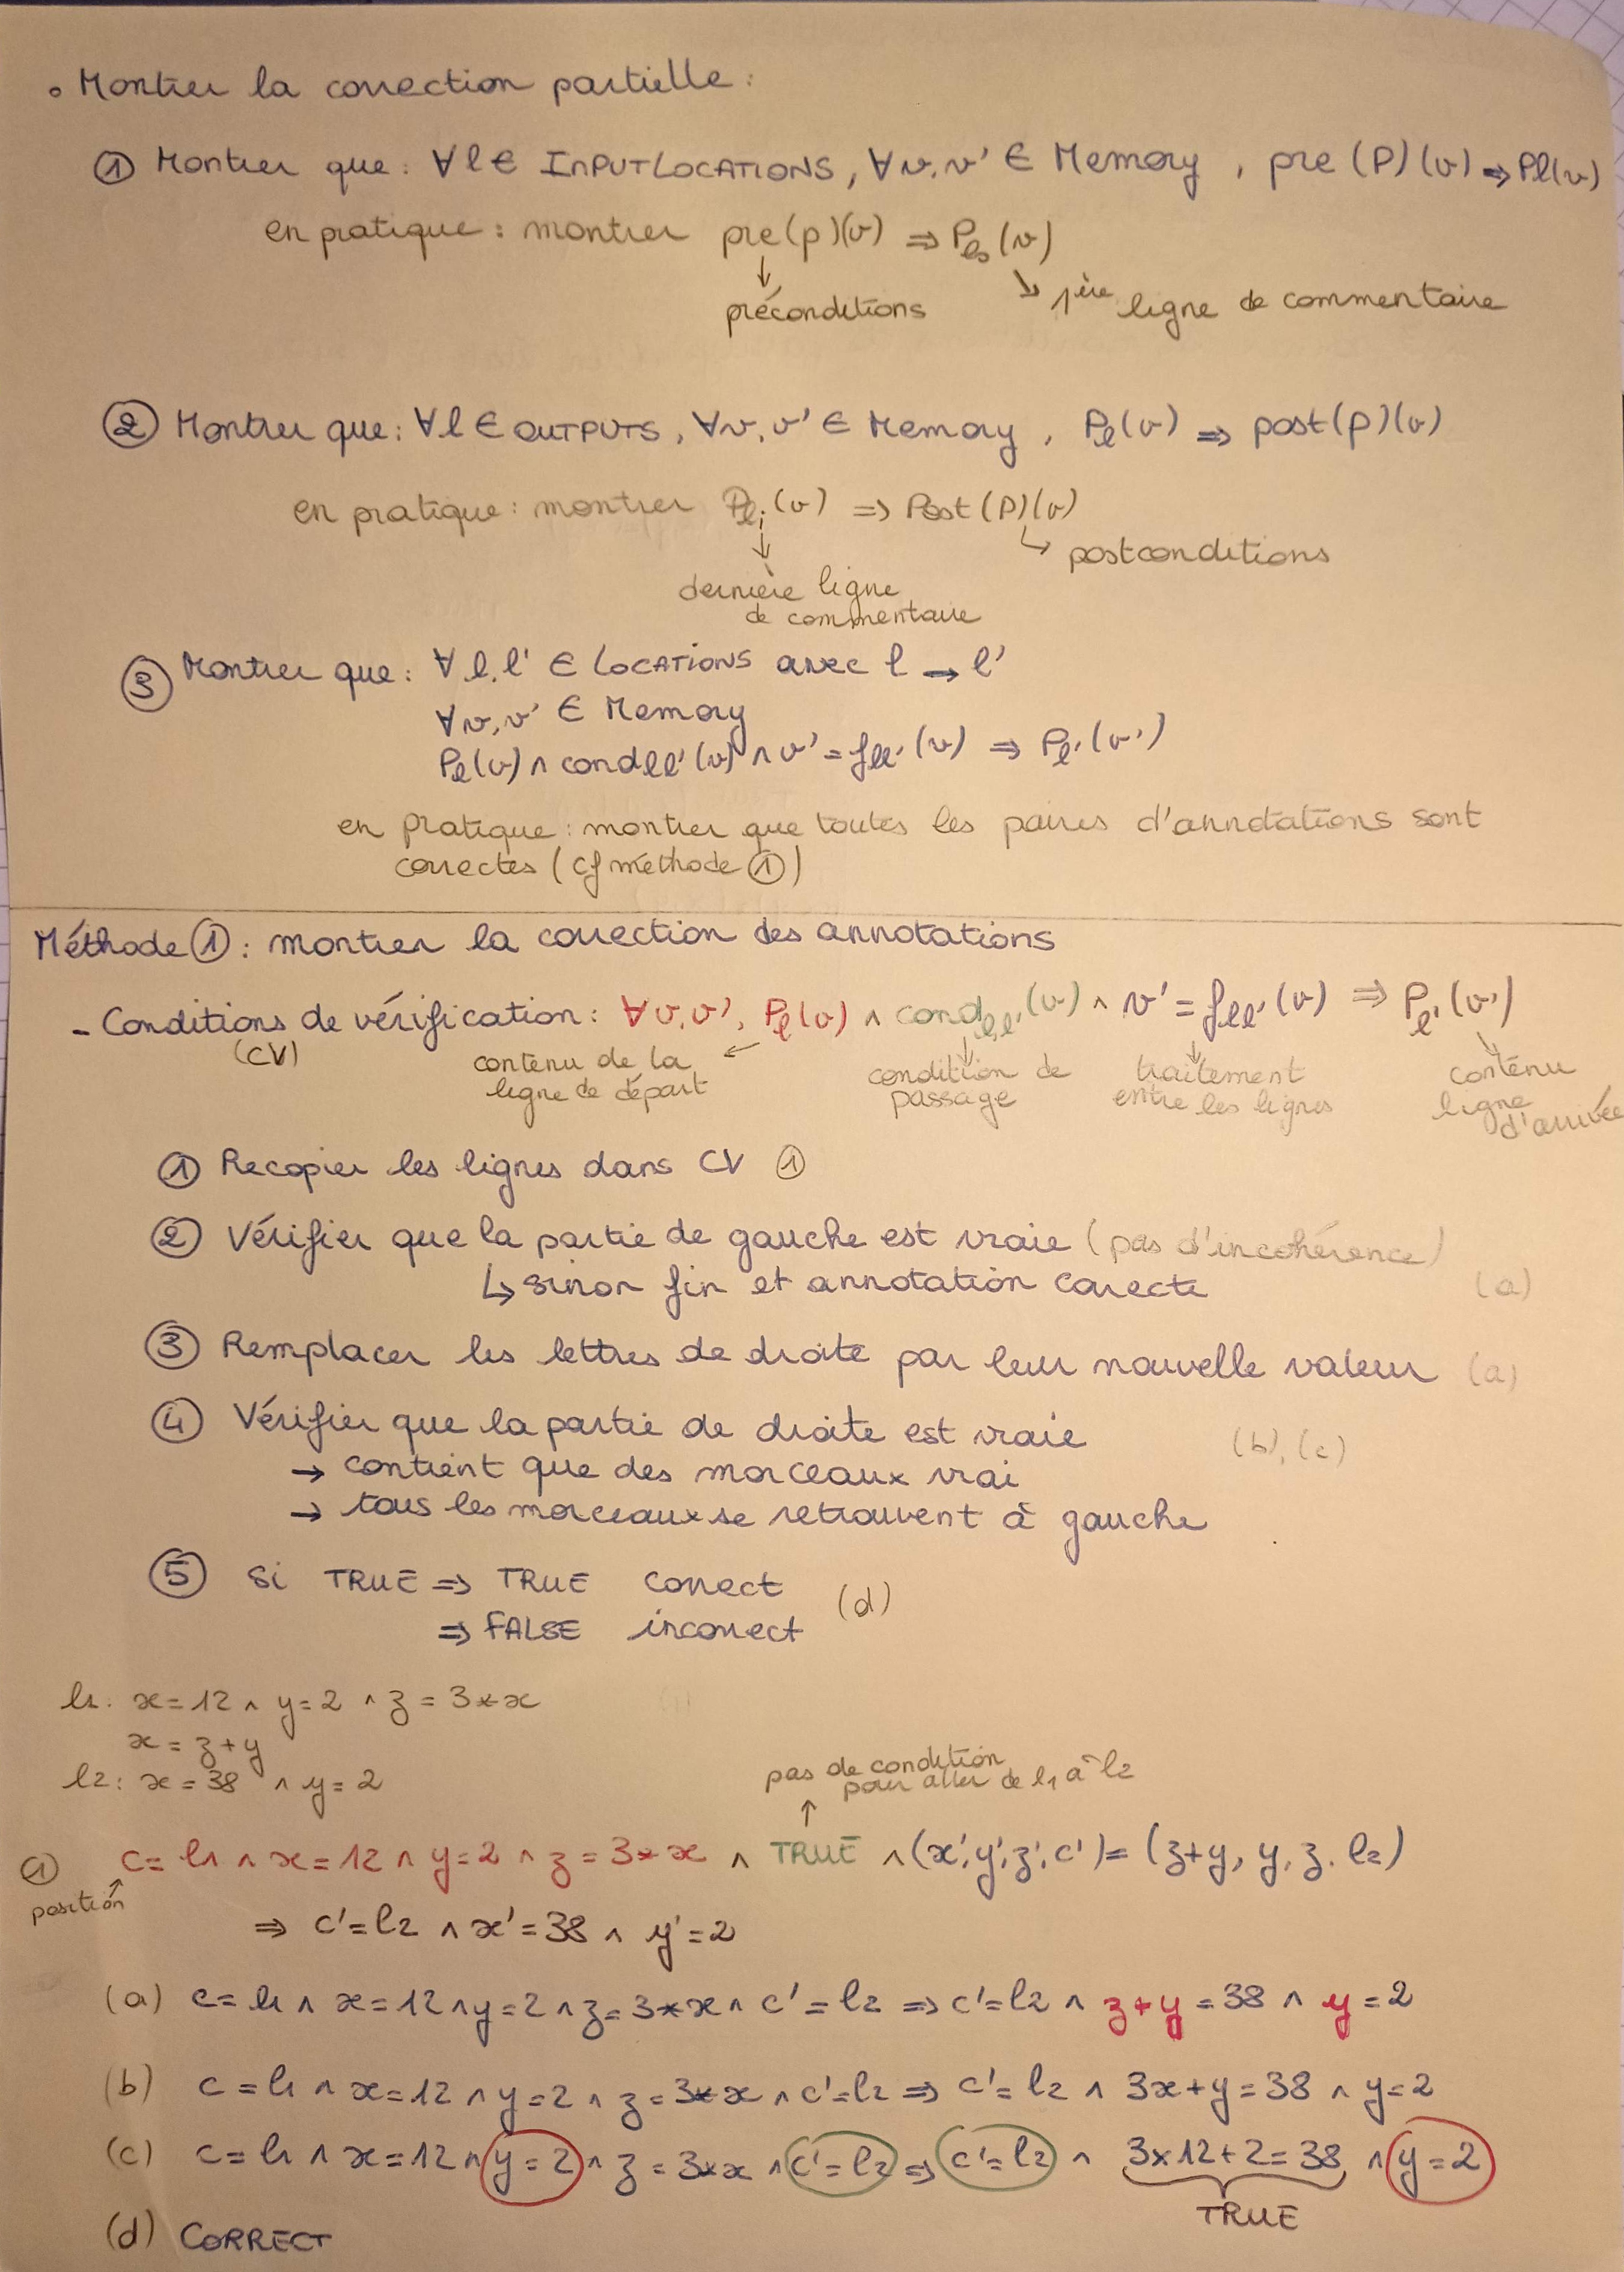 • Montrer la correction partielle :
① Montrer que : ∀ l ∈ INPUTLOCATIONS, ∀ v, v' ∈ Memory, pre(P)(v) ⇒ Pl(v)
en pratique : montrer pre(p)(v) ⇒ Pl0(v)
↓ ↘
préconditions 1ère ligne de commentaire
② Montrer que : ∀ l ∈ OUTPUTS, ∀ v, v' ∈ Memory, Pl(v) ⇒ post(p)(v)
en pratique : montrer Pli(v) ⇒ Post(P)(v)
↓ ↳ postconditions
dernière ligne
de commentaire
③ Montrer que : ∀ l, l' ∈ LOCATIONS avec l → l'
∀ v, v' ∈ Memory
Pl(v) ∧ condll'(v) ∧ v' = fll'(v) ⇒ Pl'(v')
en pratique : montrer que toutes les paires d'annotations sont
correctes (cf méthode ①)
Méthode ① : montrer la correction des annotations
- Conditions de vérification : ∀ v, v', Pl(v) ∧ condl,l'(v) ∧ v' = fll'(v) ⇒ Pl'(v')
(CV) contenu de la condition de traitement contenu
ligne de départ passage entre les lignes ligne
d'arrivée
① Recopier les lignes dans CV ①
② Vérifier que la partie de gauche est vraie (pas d'incohérence)
↳ sinon fin et annotation correcte (a)
③ Remplacer les lettres de droite par leur nouvelle valeur (a)
④ Vérifier que la partie de droite est vraie (b), (c)
→ contient que des morceaux vrai
→ tous les morceaux se retrouvent à gauche
⑤ Si TRUE ⇒ TRUE correct
⇒ FALSE incorrect (d)
l1 : x = 12 ∧ y = 2 ∧ z = 3*x
x = z+y
l2 : x = 38 ∧ y = 2
pas de condition
pour aller de l1 à l2
↑
① c = l1 ∧ x = 12 ∧ y = 2 ∧ z = 3*x ∧ TRUE ∧ (x', y', z', c') = (z+y, y, z, l2)
position
⇒ c' = l2 ∧ x' = 38 ∧ y' = 2
(a) c = l1 ∧ x = 12 ∧ y = 2 ∧ z = 3*x ∧ c' = l2 ⇒ c' = l2 ∧ z+y = 38 ∧ y = 2
(b) c = l1 ∧ x = 12 ∧ y = 2 ∧ z = 3*x ∧ c' = l2 ⇒ c' = l2 ∧ 3x+y = 38 ∧ y = 2
(c) c = l1 ∧ x = 12 ∧ y = 2 ∧ z = 3*x ∧ c' = l2 ⇒ c' = l2 ∧ 3×12+2 = 38 ∧ y = 2
TRUE
(d) CORRECT